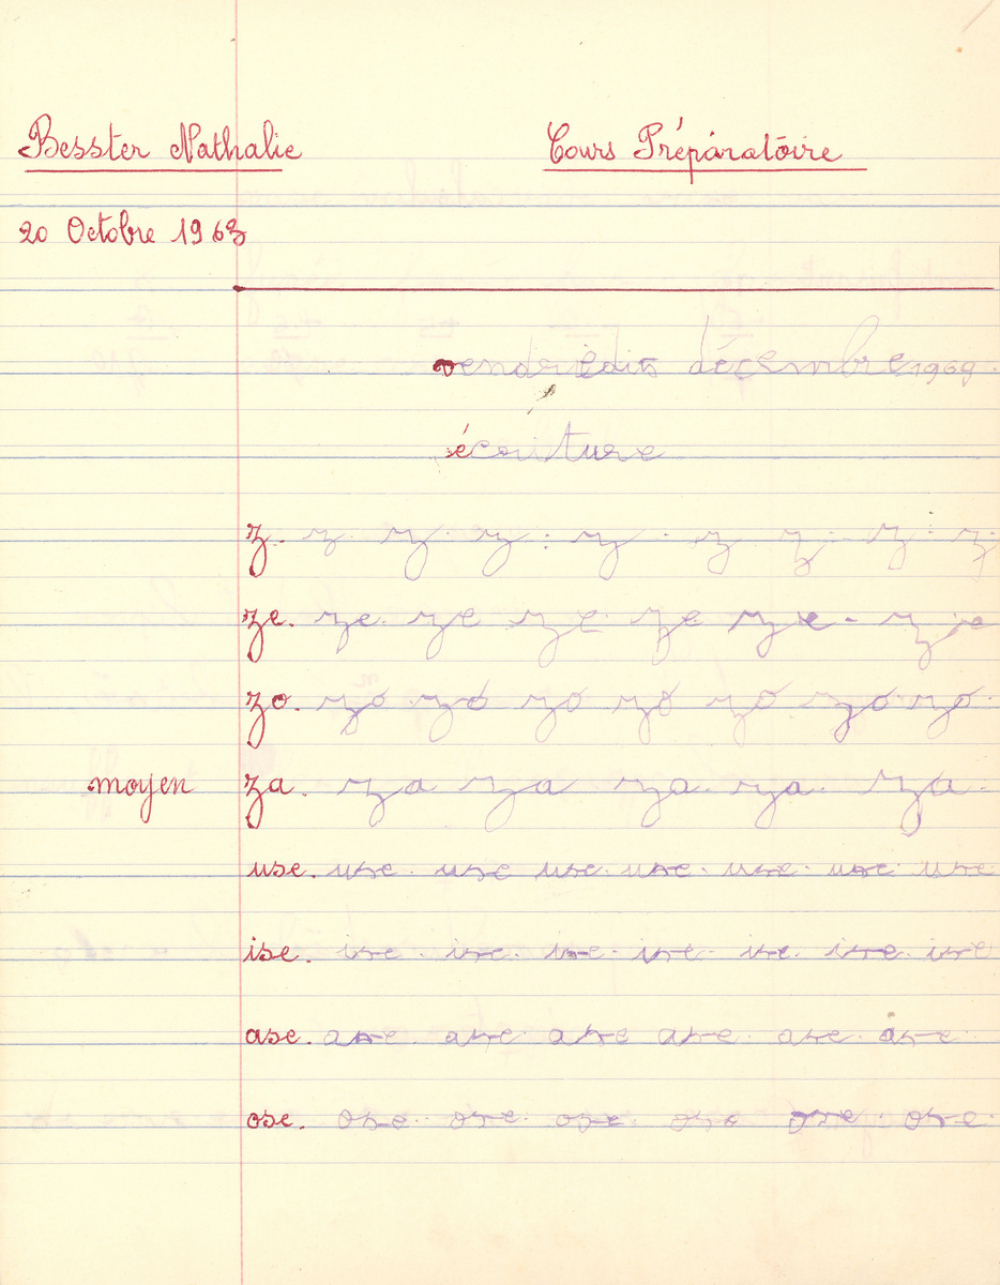 Besster Nathalie
Cours Préparatoire
20 Octobre 1963
vendredi décembre 1969.
écriture
z. z. z. z. : z . z z. z. : z.
ze. ze. ze ze ze ze - ze
zo. zo zo zo zo zo zo. zo.
moyen
za. za za za. za. za.
use. use. use use. use. use. use. use
ise. ise. ise. ise. ise. ise. ise. ise
ase. ase. ase. ase ase. ase. ase
ose. ose. ose. ose. ose ose. ose.